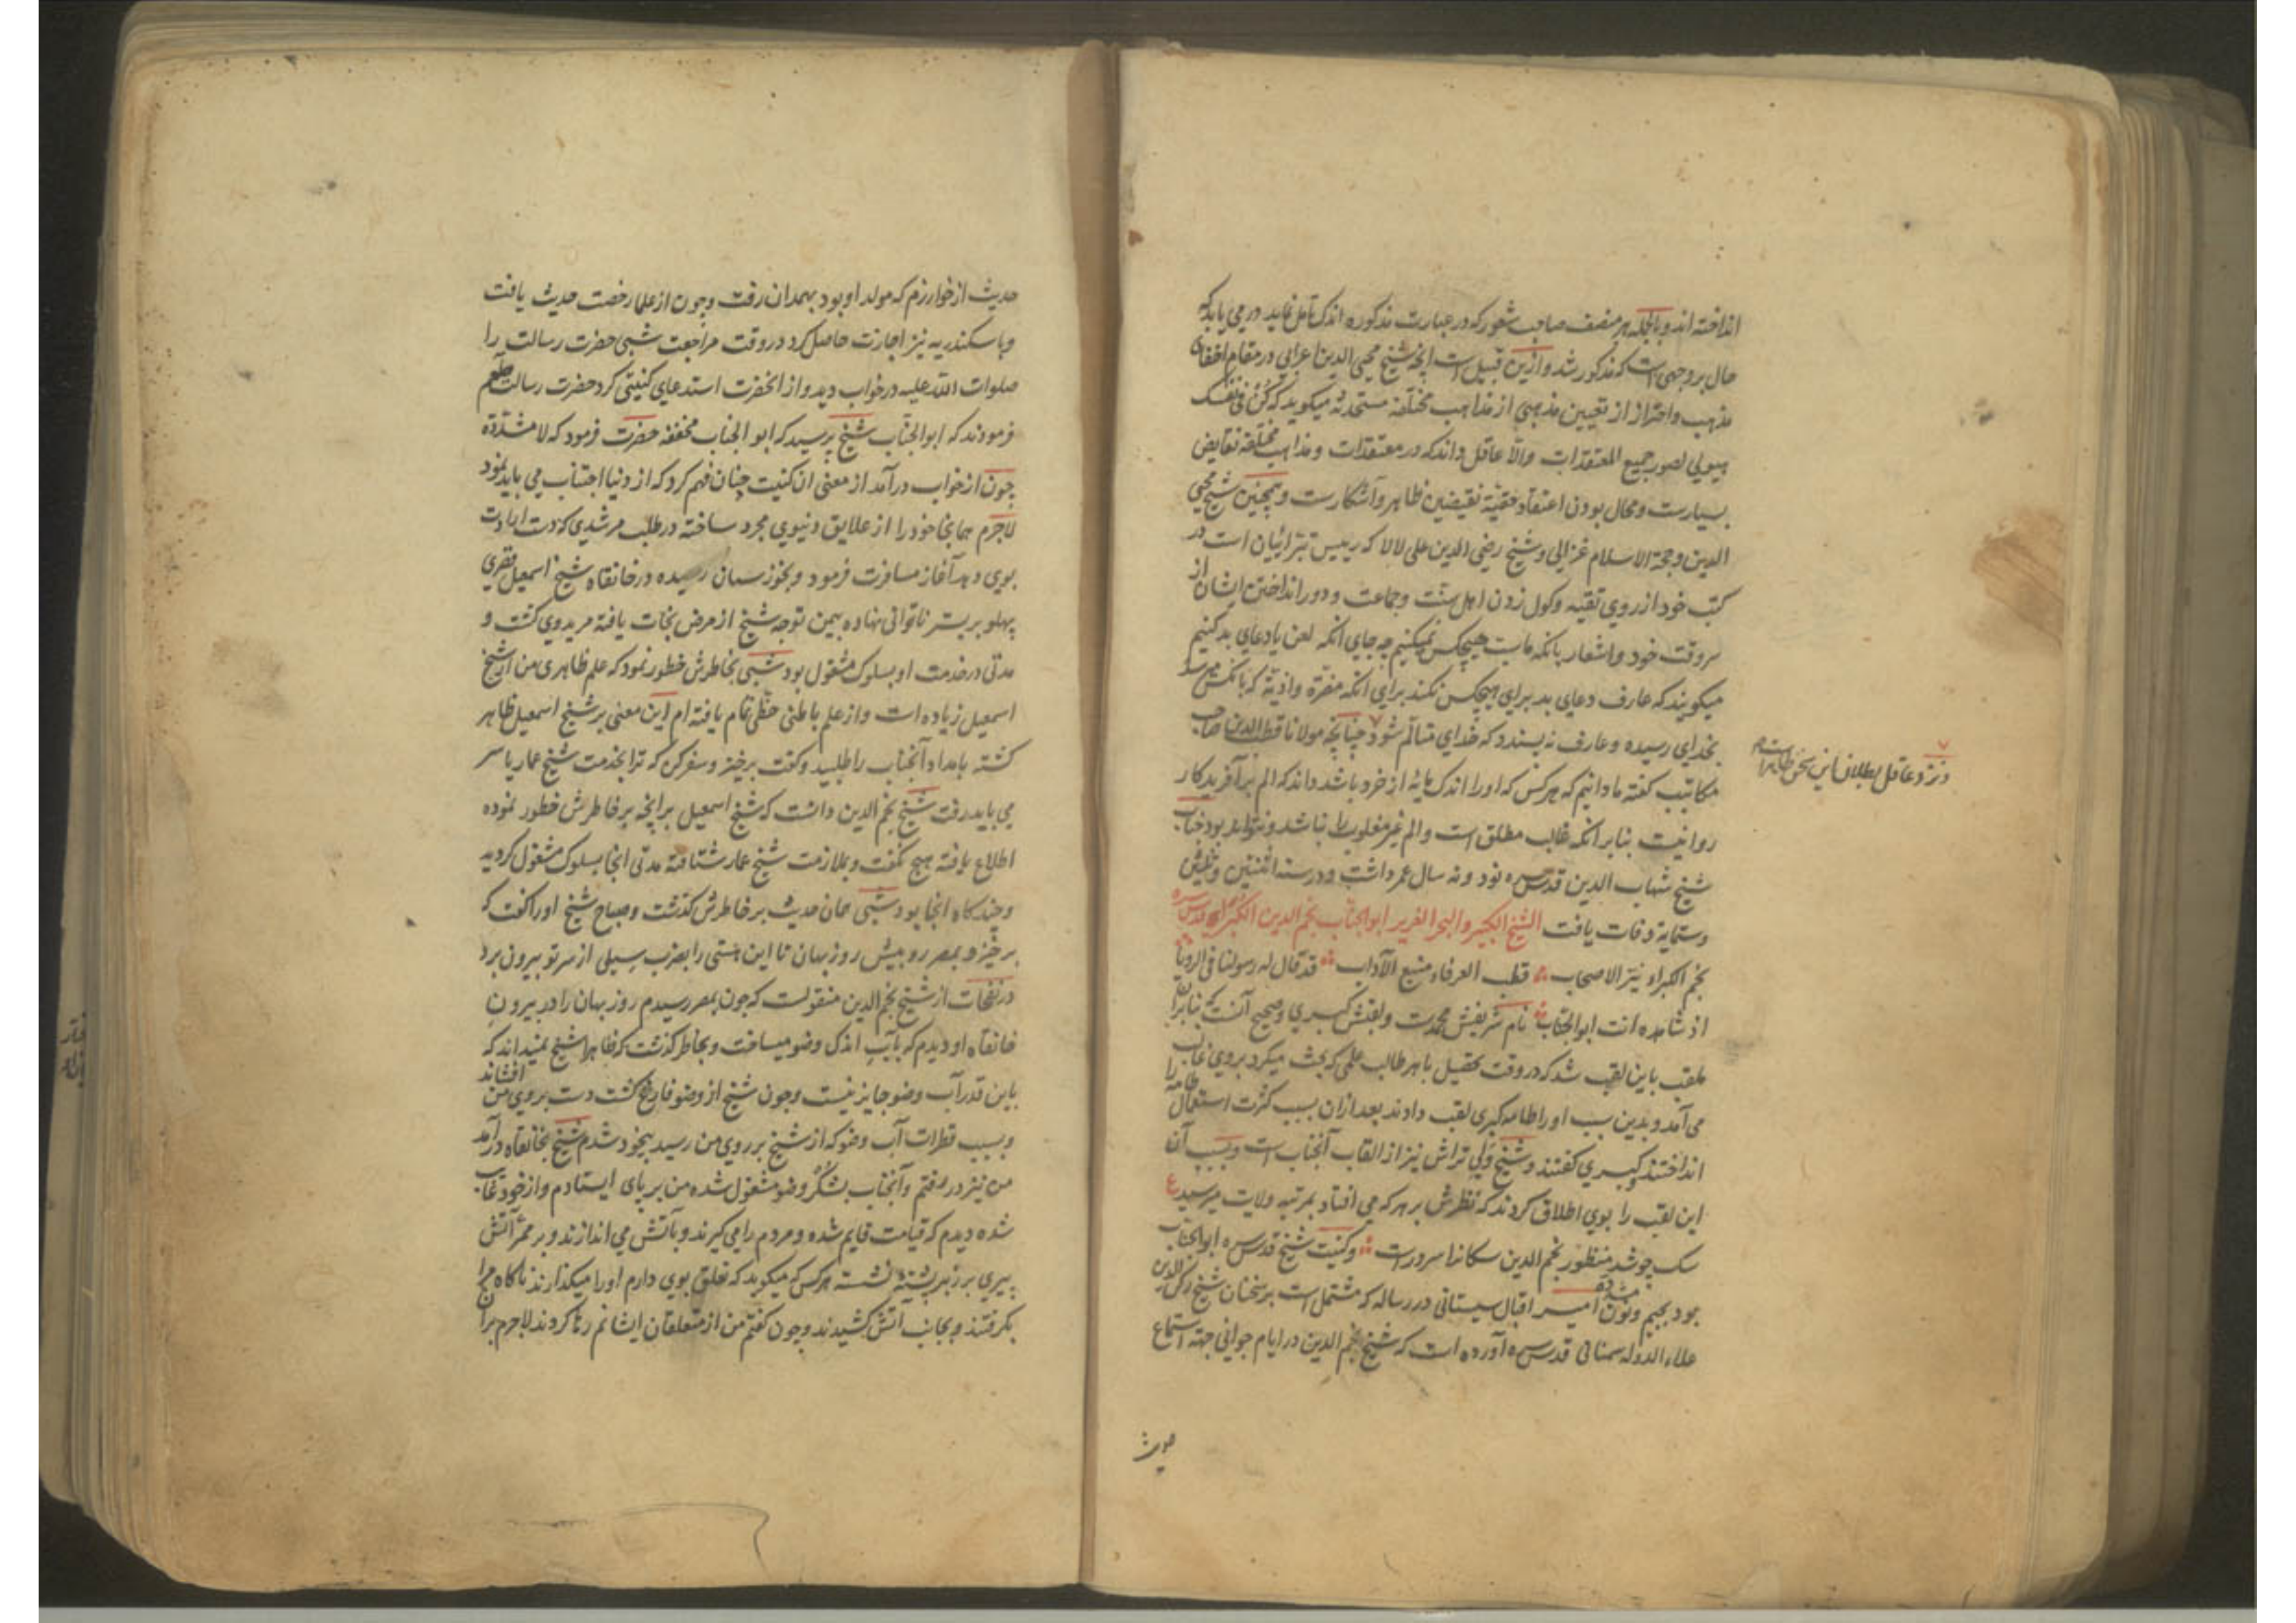 انداخته اند و بالجمله هر منصف صاحب شعور که در عبارت مذکوره اندک تامل نماید در می یابد که
حال بر وجهی است که مذکور شد و ازین قبیل است آنچه شیخ محیی الدین اعرابی در مقام اخفای
مذهب و احتراز از تعیین مذهبی از مذاهب مختلفه مستحدثه میکوید که کن فی نفسک
هیولی لصور جمیع المعتقدات والا عاقل داند که در معتقدات و مذاهب مختلفه نقایض
بسیارست و محال بودن اعتقاد حقیة نقیضین ظاهر و آشکارست و همچنین شیخ محیی
الدین و حجة الاسلام غزالی و شیخ رضی الدین علی لالا که رییس تبرائیان است در
کتب خود از روی تقیه و کول زدن اهل سنت و جماعت و دور انداختن ایشان از
سر وقت خود و اشعار بانکه ما سب هیچکس نمیکنیم چه جای انکه لعن یا دعای بد کنیم
میکویند که عارف دعای بد برای هیچکس نکند برای انکه مضرة و اذیة که بانکس میرسد
بخدای رسیده و عارف نه پسندد که خدای متالم شود چنانچه مولانا قطب الدین صاحب
مکاتیب کفته ما دانیم که هر کس که او را اندک مایه از خرد باشد داند که الم بر آفریدکار
روا نیست بنابر انکه غالب مطلق است والم غیر مغلوب را نباشد و نتواند بود جناب
ونزد عاقل بطلان این سخن ظاهر است
شیخ شهاب الدین قدس سره نود و نه سال عمر داشت و در سنه اثنتین و ثلثین
وستمایة وفات یافت الشیخ الکبیر و البحر الغزیر ابو الجناب نجم الدین الکبراء قدس سره
نجم الکبراء نیر الاصحاب قطب العرفاء منبع الآداب قد قال له رسولنا فی الرویا
اذ شاهده انت ابو الجناب نام شریفش محمدست و لقبش کبری و صحیح آنست که بنابر آن
ملقب باین لقب شد که در وقت تحصیل با هر طالب علمی که بحث میکرد بروی غالب
می آمد و بدین سبب او را طامه کبری لقب دادند بعد ازان بسبب کثرت استعمال طامه را
انداختند و کبری کفتند و شیخ ولی تراش نیز از القاب آنجناب است و بسبب آن
این لقب را بوی اطلاق کردند که نظرش بر هر که می افتاد بمرتبه ولایت میرسید ع
سک چو شد منظور نجم الدین سکانرا سرورست و کنیت شیخ قدس سره ابو الجناب
بود بجیم و نون مشدده امیر اقبال سیستانی در رساله که مشتمل است بر سخنان شیخ رکن الدین
علاء الدوله سمنانی قدس سره آورده است که شیخ نجم الدین در ایام جوانی جهة استماع
حدیث
حدیث از خوارزم که مولد او بود بهمدان رفت و چون از علما رخصت حدیث یافت
و باسکندریه نیز اجازت حاصل کرد در وقت مراجعت شبی حضرت رسالت را
صلوات الله علیه در خواب دید و از انحضرت استدعای کنیتی کرد حضرت رسالت صلعم
فرمودند که ابو الجناب شیخ پرسید که ابو الجناب مخففه حضرت فرمود که لا مشددة
چون از خواب درآمد از معنی ان کنیت چنان فهم کرد که از دنیا اجتناب می باید نمود
لاجرم همانجا خود را از علایق دنیوی مجرد ساخته در طلب مرشدی که دست ارادت
بوی دهد آغاز مسافرت فرمود و بخوزستان رسیده در خانقاه شیخ اسمعیل قصری
پهلو بر بستر ناتوانی نهاده بیمن توجه شیخ از مرض نجات یافته مرید وی کشت و
مدتی در خدمت او بسلوک مشغول بود شبی بخاطرش خطور نمود که علم ظاهری من از شیخ
اسمعیل زیاده است و از علم باطنی حظی تمام یافته ام این معنی بر شیخ اسمعیل ظاهر
کشته بامداد آنجناب را طلبید و کفت برخیز و سفر کن که ترا بخدمت شیخ عمار یاسر
می باید رفت شیخ نجم الدین دانست که شیخ اسمعیل بر آنچه بر خاطرش خطور نموده
اطلاع یافته هیچ نکفت و بملازمت شیخ عمار شتافته مدتی انجا بسلوک مشغول کردید
و چندکاه انجا بود شبی همان حدیث بر خاطرش کذشت و صباح شیخ او را کفت که
برخیز و بمصر رو پیش روزبهان تا این هستی را بضرب سیلی از سر تو بیرون برد
در نفحات از شیخ نجم الدین منقولست که چون بمصر رسیدم روزبهان را در بیرون
خانقاه او دیدم که بآب اندک وضو میساخت و بخاطر کذشت که ظاهرا شیخ نمیداند که
باین قدر آب وضو جایز نیست و چون شیخ از وضو فارغ کشت دست بروی من افشاند
و بسبب قطرات آب وضو که از شیخ بر روی من رسید بیخود شدم شیخ بخانقاه درآمد
من نیز در رفتم و آنجناب بشکر وضو مشغول شده من بر پای ایستادم و از خود غایب
شده دیدم که قیامت قایم شده و مردم را می کیرند و بآتش می اندازند و بر ممر آتش
پیری بر زبر پشته نشسته هر کس که میکوید که تعلق بوی دارم او را میکذارند ناکاه مرا
بکرفتند و بجانب آتش کشیدند و چون کفتم من از متعلقان ایشانم رها کردند لاجرم بران